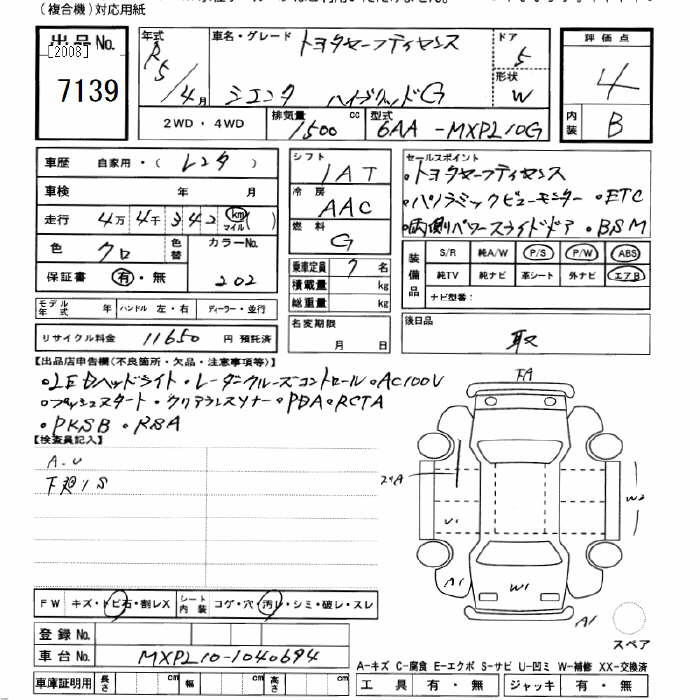 (複合機)対応用紙
出品No.
[2008]
7139
年式 R5/4月
車名・グレード トヨタセーフティセンス
シエンタ ハイブリッドG
ドア 5
形状 W
評価点 4
内装 B
2WD・4WD
排気量 1500 cc
型式 6AA-MXPL10G
車歴 自家用・(レンタ)
車検 年 月
走行 4万4千342 km マイル( )
色 クロ 色替 カラーNo. 202
保証書 有・無
モデル年式 年 ハンドル 左・右 ディーラー・並行
リサイクル料金 11650 円 預託済
シフト IAT
冷房 AAC
燃料 G
乗車定員 7 名
積載量 kg
総重量 kg
名変期限 月 日
セールスポイント
・トヨタセーフティセンス
・パノラミックビューモニター ・ETC
・両側パワースライドドア ・BSM
装備品 S/R 純A/W P/S P/W ABS
純TV 純ナビ 革シート 外ナビ エアB
ナビ型番:
後日品 取
【出品店申告欄(不良箇所・欠品・注意事項等)】
・LEDヘッドライト・レーダークルーズコントロール・AC100V
・プッシュスタート・クリアランスソナー・PDA・RCTA
・PKSB・RSA
【検査員記入】
A.U
下廻りS
FA
2本A
U1
U2
A1
W1
A1
スペア
FW キズ・トビ石・割レX シート内装 コゲ・穴・汚レ・シミ・破レ・スレ
登録No.
車台No. MXPL10-1040694
車庫証明用 長さ cm 幅 cm 高さ cm
A-キズ C-腐食 E-エクボ S-サビ U-凹ミ W-補修 XX-交換済
工具 有・無 ジャッキ 有・無